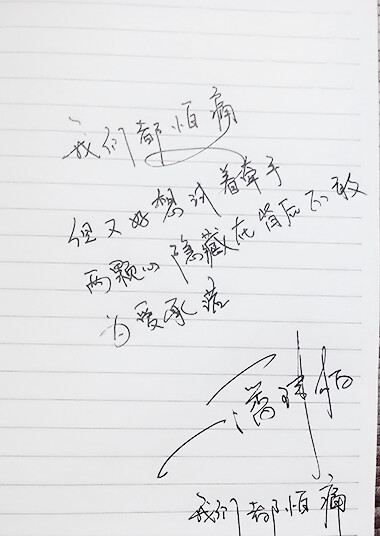 我们都怕痛
但又好想试着牵手
两颗心隐藏在背后不敢
为爱承诺
潘玮柏
我们都怕痛